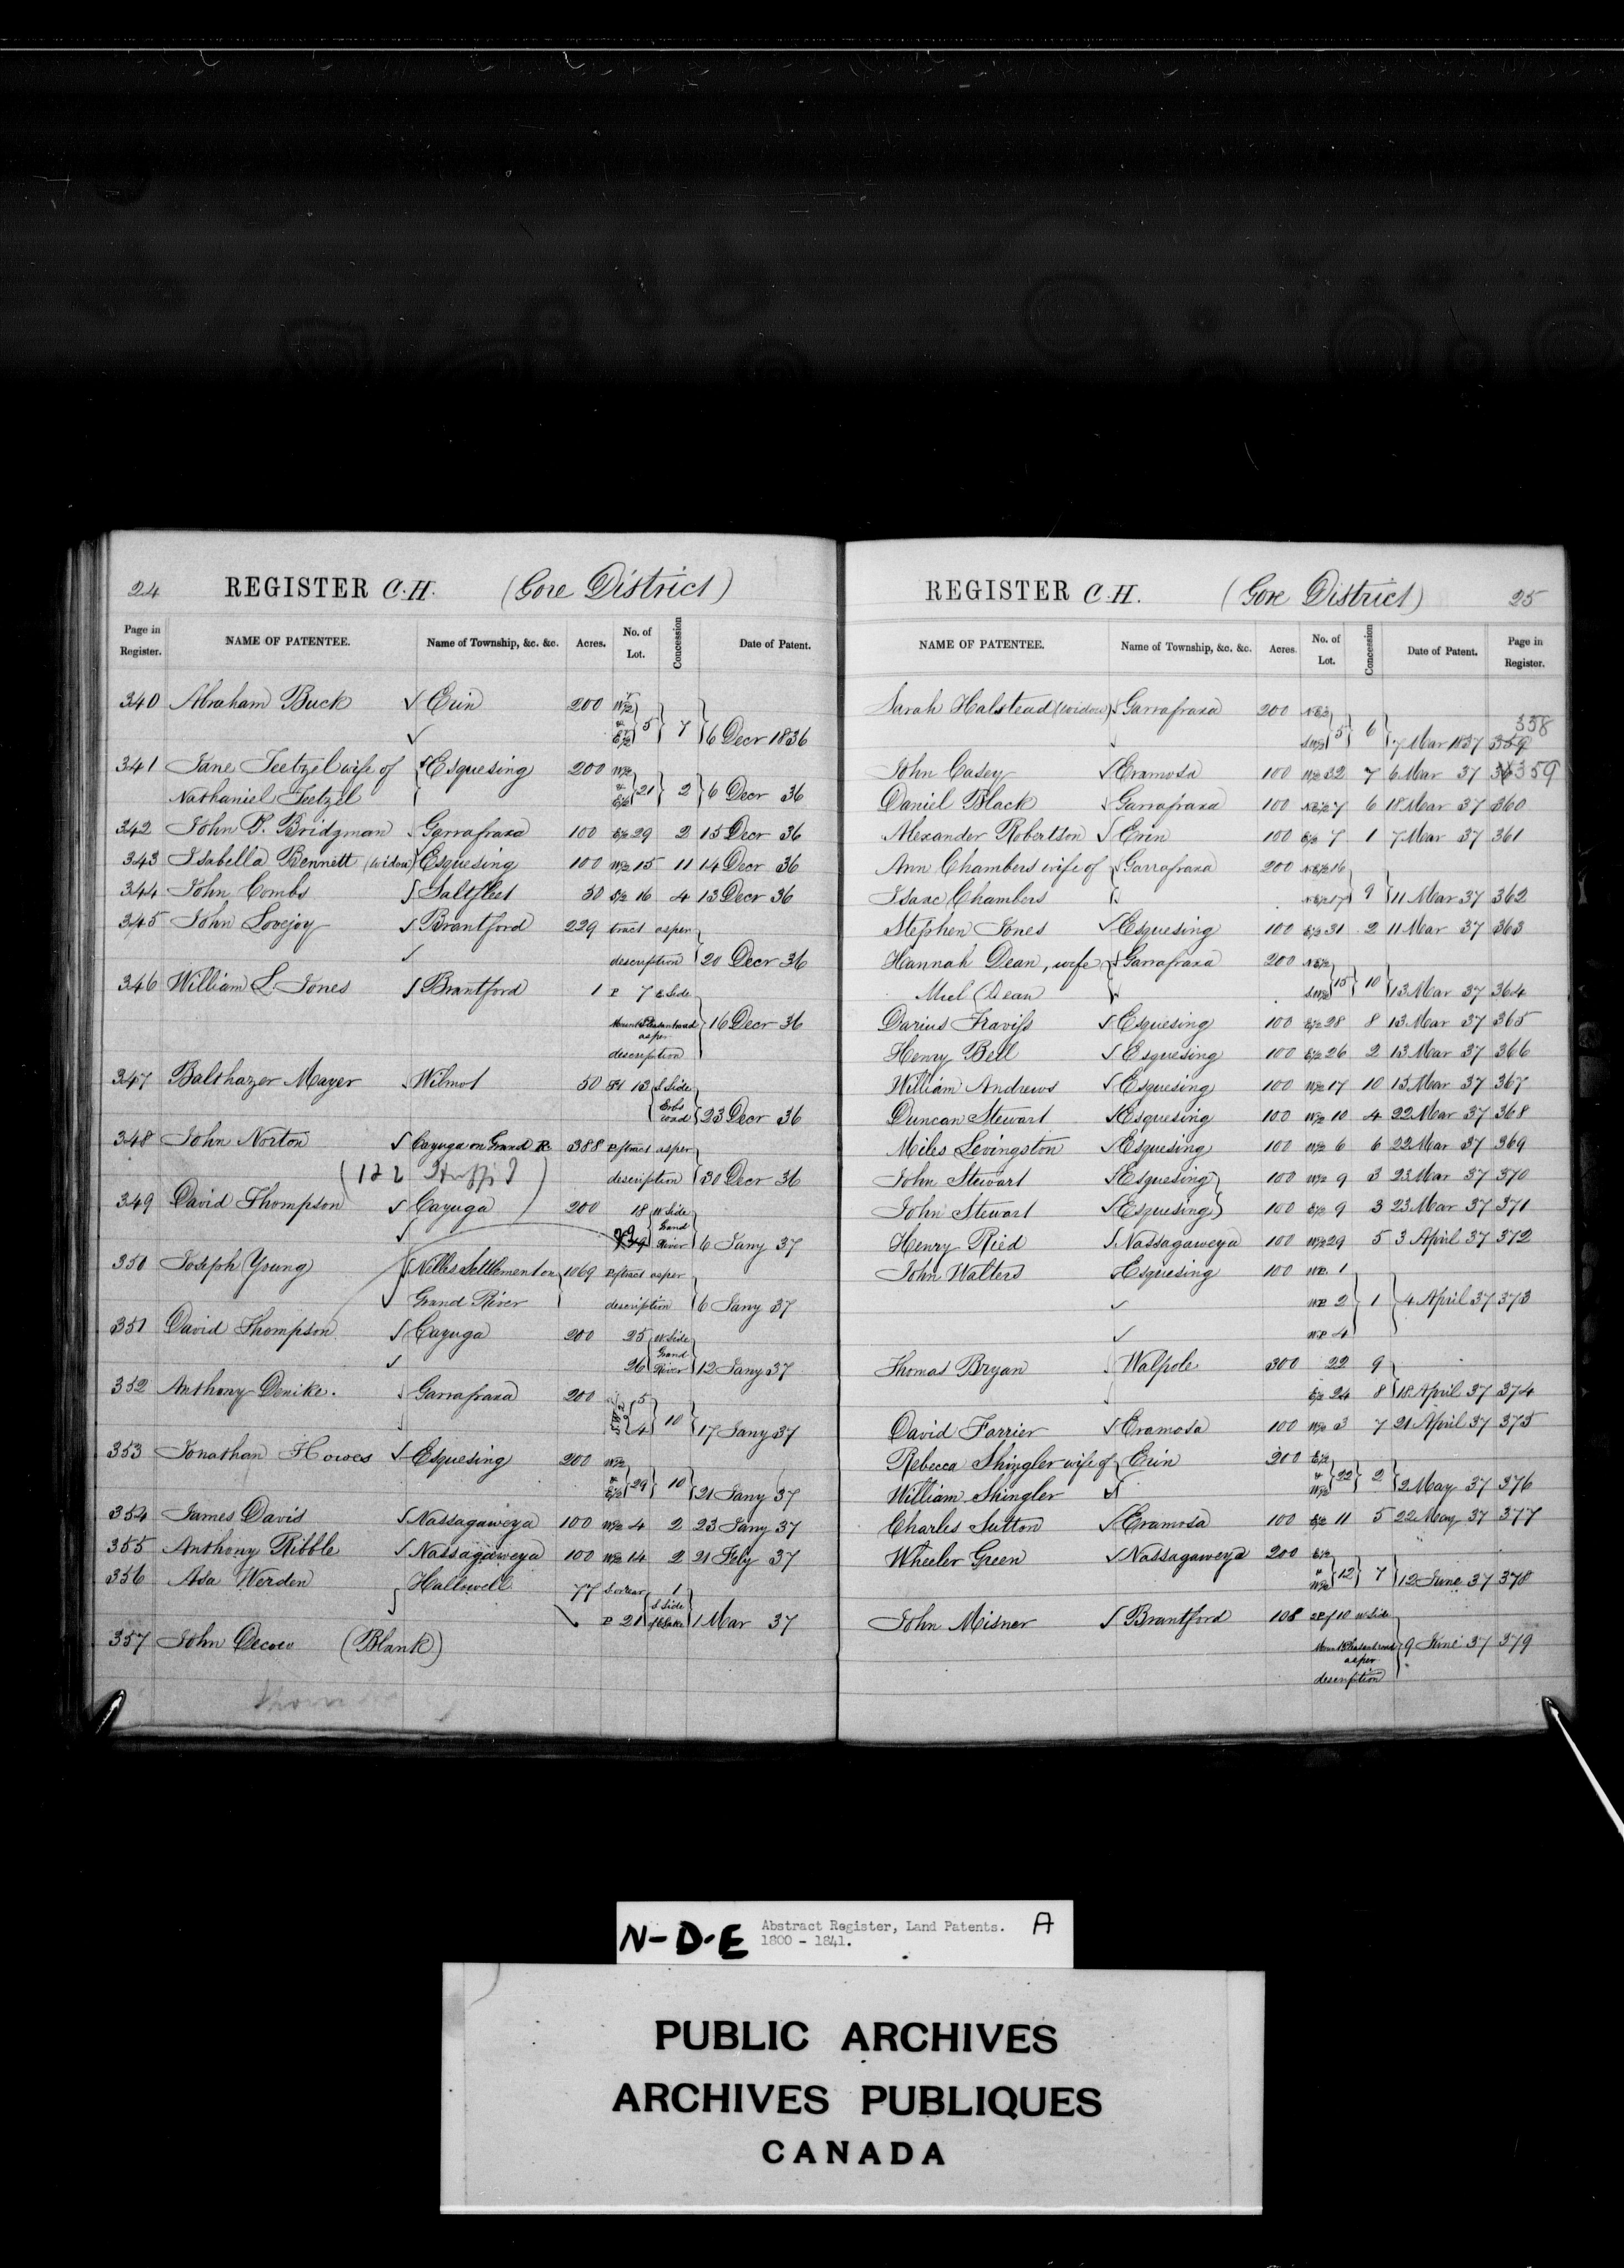 24 REGISTER C.H. (Gore District)
Page in Register. NAME OF PATENTEE. Name of Township, &c. &c. Acres. No. of Lot. Concession Date of Patent.
340 Abraham Buck ✓ Erin 200 W½
✓ & E½ } 5 } 7 } 6 Decr 1836
341 Jane Teetzel wife of Esquesing 200 W½
Nathaniel Teetzel & E½ } 21 } 2 } 6 Decr 36
342 John B. Bridgman Garrafraxa 100 E½ 29 2 15 Decr 36
343 Isabella Bennett (widow) Esquesing 100 W½ 15 11 14 Decr 36
344 John Combs Saltfleet 50 S½ 16 4 13 Decr 36
345 John Lovejoy Brantford 229 tract as per
✓ description } 20 Decr 36
346 William L. Jones Brantford 1 P 7 E Side
Mount Pleasant road } 16 Decr 36
as per
description
347 Balthazer Mayer Wilmot 50 13 S Side
Erbs road } 23 Decr 36
348 John Norton ✓ Cayuga on Grand R. 388 P of tract as per
description } 30 Decr 36
349 David Thompson ✓ Cayuga 200 18 W Side
✓ Grand River } 6 Jany 37
350 Joseph Young Nelles Settlement on 1069 P of tract as per
✓ Grand River description } 6 Jany 37
351 David Thompson ✓ Cayuga 200 25 W Side
✓ 26 Grand River } 12 Jany 37
352 Anthony Denike. Garrafraxa 200 5
4 } 10 } 17 Jany 37
353 Jonathan Howes ✓ Esquesing 200 W½
& E½ } 29 } 10 } 21 Jany 37
354 James Davis ✓ Nassagaweya 100 W½ 4 2 23 Jany 37
355 Anthony Ribble ✓ Nassagaweya 100 W½ 14 2 21 Feby 37
356 Ada Werden Hallowell 77 S. or rear 1
P 21 S Side of Lake } 1 Mar 37
357 John Decow (Blank)
REGISTER C.H. (Gore District) 25
NAME OF PATENTEE. Name of Township, &c. &c. Acres. No. of Lot. Concession Date of Patent. Page in Register.
Sarah Halstead (widow) Garrafraxa 200 NE½
358
SW½ } 5 } 6 } 7 Mar 1837 359
John Casey ✓ Eramosa 100 W½ 32 7 6 Mar 37 359
Daniel Black Garrafraxa 100 NE½ 7 6 18 Mar 37 360
Alexander Robertson ✓ Erin 100 E½ 7 1 7 Mar 37 361
Ann Chambers wife of Garrafraxa 200 NE½ 16
Isaac Chambers NE½ 17 } 9 } 11 Mar 37 362
Stephen Jones ✓ Esquesing 100 E½ 31 2 11 Mar 37 363
Hannah Dean, wife Garrafraxa 200 NE½
Miel Dean SW½ } 15 } 10 } 13 Mar 37 364
Darius Traviss ✓ Esquesing 100 E½ 28 8 13 Mar 37 365
Henry Bell ✓ Esquesing 100 E½ 26 2 13 Mar 37 366
William Andrews ✓ Esquesing 100 W½ 17 10 15 Mar 37 367
Duncan Stewart ✓ Esquesing 100 W½ 10 4 22 Mar 37 368
Miles Levingston ✓ Esquesing 100 W½ 6 6 22 Mar 37 369
John Stewart ✓ Esquesing 100 W½ 9 3 23 Mar 37 370
John Stewart ✓ Esquesing 100 E½ 9 3 23 Mar 37 371
Henry Ried ✓ Nassagaweya 100 W½ 29 5 3 April 37 372
John Walters Esquesing 100 WP. 1
✓ WP 2 } 1 } 4 April 37 373
✓ WP 4
Thomas Bryan Walpole 300 22 9
E½ 24 8 } 18 April 37 374
David Farrier ✓ Eramosa 100 W½ 3 7 21 April 37 375
Rebecca Shingler wife of Erin 200 E½
William Shingler & W½ } 22 } 2 } 2 May 37 376
Charles Sutton ✓ Eramosa 100 E½ 11 5 22 May 37 377
Wheeler Green ✓ Nassagaweya 200 E½
" W½ } 12 } 7 } 12 June 37 378
John Misner ✓ Brantford 108 P of 10 W Side
Mount Pleasant road } 9 June 37 379
as per
description
N-D-E Abstract Register, Land Patents. A
1800 - 1841.
PUBLIC ARCHIVES
ARCHIVES PUBLIQUES
CANADA